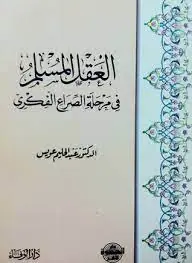 العقل المسلم
في مرحلة الصراع الفكري
الدكتور عبد الحليم عويس
دار الوفاء